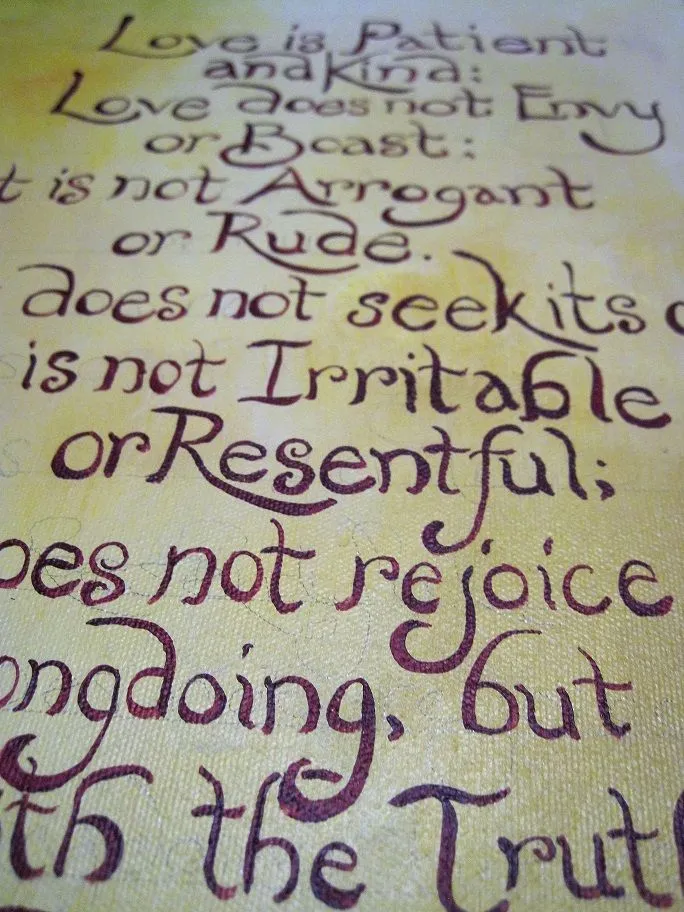 Love is Patient
and Kind:
Love does not Envy
or Boast:
t is not Arrogant
or Rude.
does not seek its
is not Irritable
or Resentful;
oes not rejoice
ongdoing, but
th the Trut